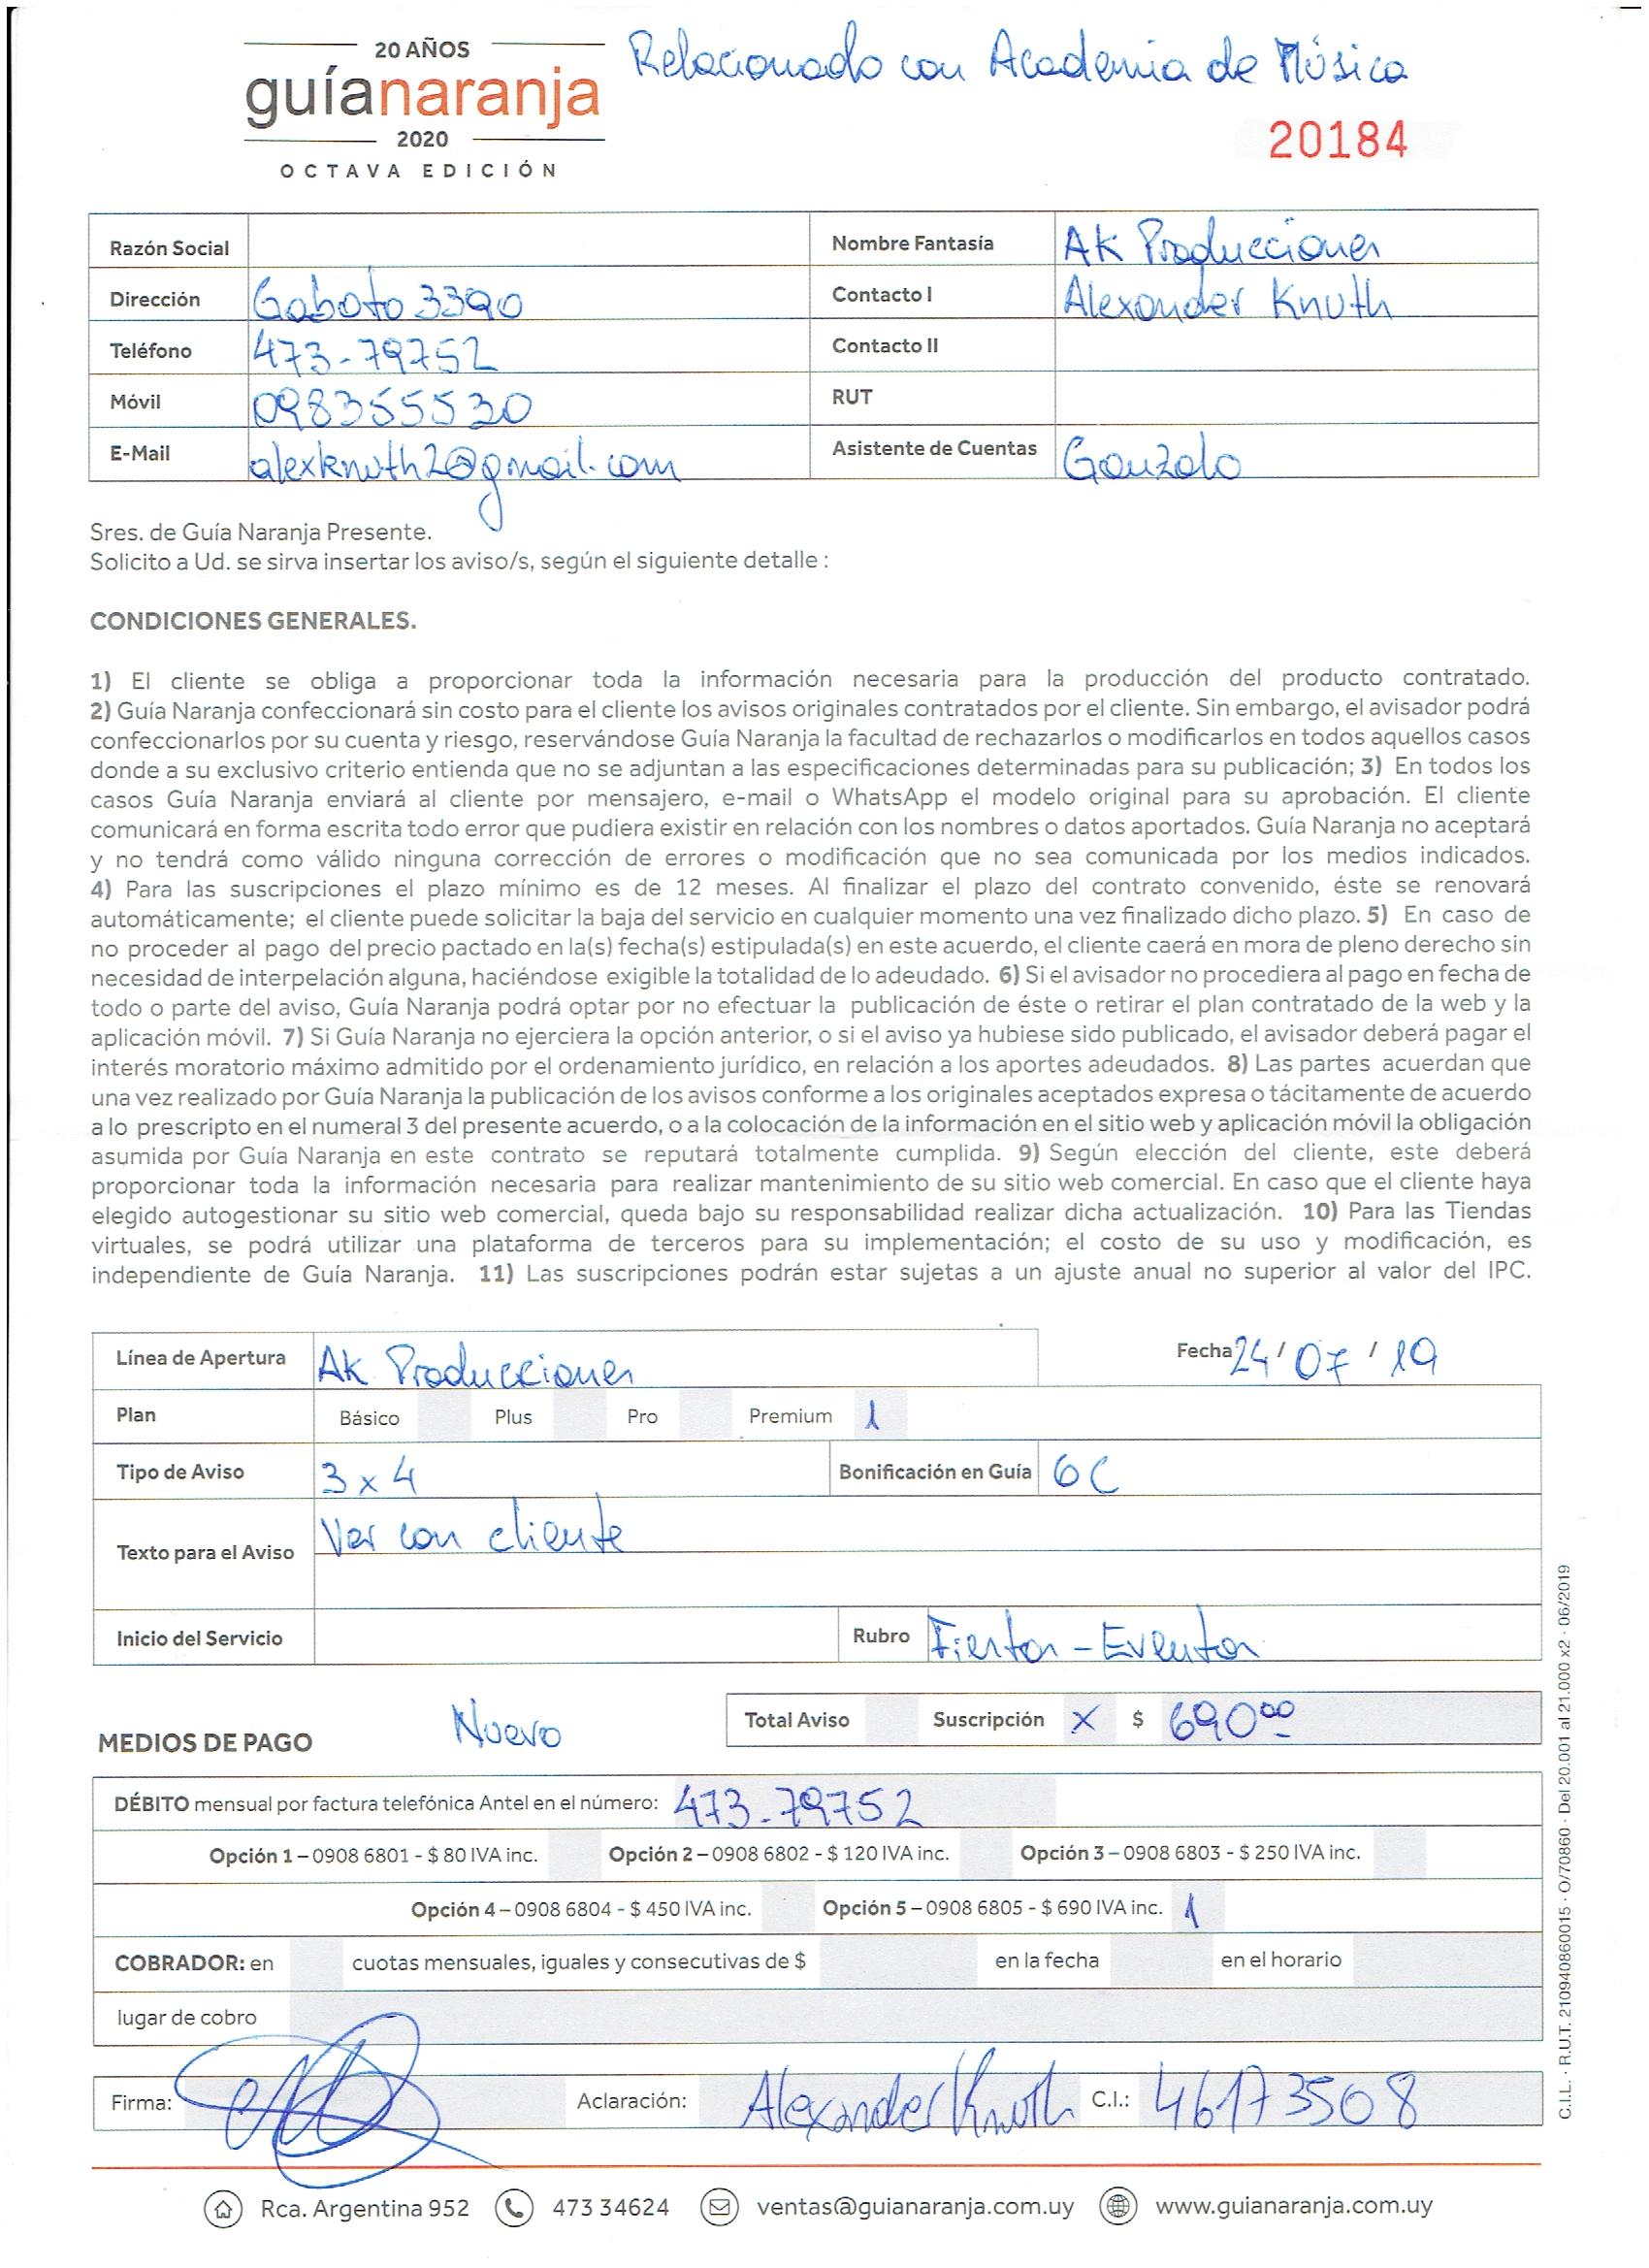 20 AÑOS
guíanaranja
2020
OCTAVA EDICIÓN
Relacionado con Academia de Música
20184
Razón Social
Nombre Fantasía AK Producciones
Dirección Gaboto 3390
Contacto I Alexander Knuth
Teléfono 473-79752
Contacto II
Móvil 098355530
RUT
E-Mail alexknuth2@gmail.com
Asistente de Cuentas Gonzalo
Sres. de Guía Naranja Presente.
Solicito a Ud. se sirva insertar los aviso/s, según el siguiente detalle :
CONDICIONES GENERALES.
1) El cliente se obliga a proporcionar toda la información necesaria para la producción del producto contratado.
2) Guía Naranja confeccionará sin costo para el cliente los avisos originales contratados por el cliente. Sin embargo, el avisador podrá
confeccionarlos por su cuenta y riesgo, reservándose Guía Naranja la facultad de rechazarlos o modificarlos en todos aquellos casos
donde a su exclusivo criterio entienda que no se adjuntan a las especificaciones determinadas para su publicación; 3) En todos los
casos Guía Naranja enviará al cliente por mensajero, e-mail o WhatsApp el modelo original para su aprobación. El cliente
comunicará en forma escrita todo error que pudiera existir en relación con los nombres o datos aportados. Guía Naranja no aceptará
y no tendrá como válido ninguna corrección de errores o modificación que no sea comunicada por los medios indicados.
4) Para las suscripciones el plazo mínimo es de 12 meses. Al finalizar el plazo del contrato convenido, éste se renovará
automáticamente; el cliente puede solicitar la baja del servicio en cualquier momento una vez finalizado dicho plazo. 5) En caso de
no proceder al pago del precio pactado en la(s) fecha(s) estipulada(s) en este acuerdo, el cliente caerá en mora de pleno derecho sin
necesidad de interpelación alguna, haciéndose exigible la totalidad de lo adeudado. 6) Si el avisador no procediera al pago en fecha de
todo o parte del aviso, Guía Naranja podrá optar por no efectuar la publicación de éste o retirar el plan contratado de la web y la
aplicación móvil. 7) Si Guía Naranja no ejerciera la opción anterior, o si el aviso ya hubiese sido publicado, el avisador deberá pagar el
interés moratorio máximo admitido por el ordenamiento jurídico, en relación a los aportes adeudados. 8) Las partes acuerdan que
una vez realizado por Guía Naranja la publicación de los avisos conforme a los originales aceptados expresa o tácitamente de acuerdo
a lo prescripto en el numeral 3 del presente acuerdo, o a la colocación de la información en el sitio web y aplicación móvil la obligación
asumida por Guía Naranja en este contrato se reputará totalmente cumplida. 9) Según elección del cliente, este deberá
proporcionar toda la información necesaria para realizar mantenimiento de su sitio web comercial. En caso que el cliente haya
elegido autogestionar su sitio web comercial, queda bajo su responsabilidad realizar dicha actualización. 10) Para las Tiendas
virtuales, se podrá utilizar una plataforma de terceros para su implementación; el costo de su uso y modificación, es
independiente de Guía Naranja. 11) Las suscripciones podrán estar sujetas a un ajuste anual no superior al valor del IPC.
Línea de Apertura AK Producciones
Fecha 24 / 07 / 19
Plan Básico Plus Pro Premium 1
Tipo de Aviso 3 x 4
Bonificación en Guía 6C
Texto para el Aviso Ver con cliente
Inicio del Servicio
Rubro Fiestas - Eventos
MEDIOS DE PAGO
Nuevo
Total Aviso Suscripción X $ 690.00
DÉBITO mensual por factura telefónica Antel en el número: 473-79752
Opción 1 – 0908 6801 - $ 80 IVA inc. Opción 2 – 0908 6802 - $ 120 IVA inc. Opción 3 – 0908 6803 - $ 250 IVA inc.
Opción 4 – 0908 6804 - $ 450 IVA inc. Opción 5 – 0908 6805 - $ 690 IVA inc. 1
COBRADOR: en cuotas mensuales, iguales y consecutivas de $ en la fecha en el horario
lugar de cobro
Firma:
Aclaración: Alexander Knuth C.I.: 46173508
Rca. Argentina 952 473 34624 ventas@guianaranja.com.uy www.guianaranja.com.uy
C.I.L. · R.U.T. 210940860015 · O/70860 · Del 20.001 al 21.000 x2 · 06/2019